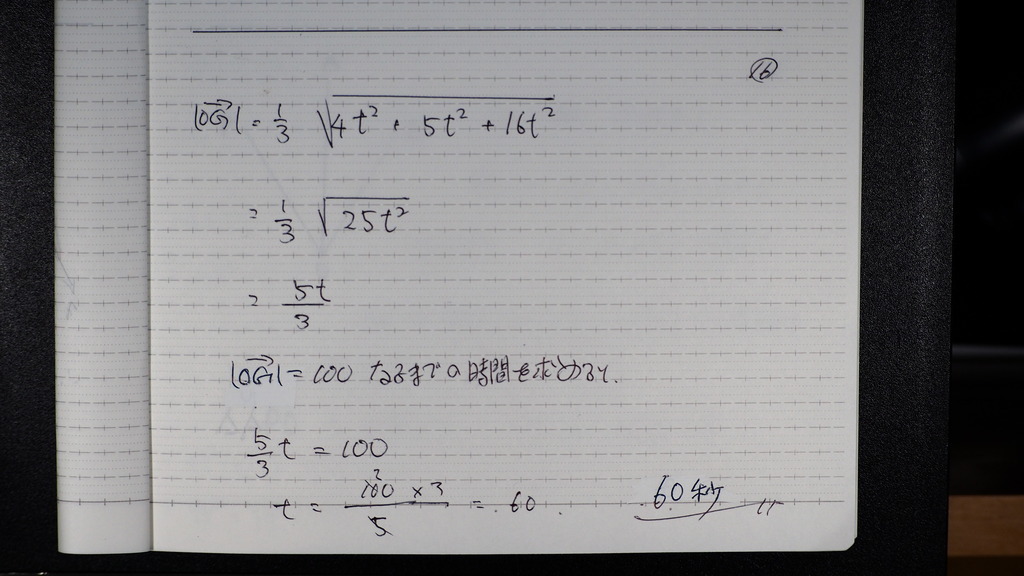 ⑯
|OG→| = 1/3 √(4t² + 5t² + 16t²)
= 1/3 √(25t²)
= 5t/3
|OG→| = 100 なるまでの時間を求めると、
5/3 t = 100
t = (100 × 3)/5 = 60. 60秒 〃